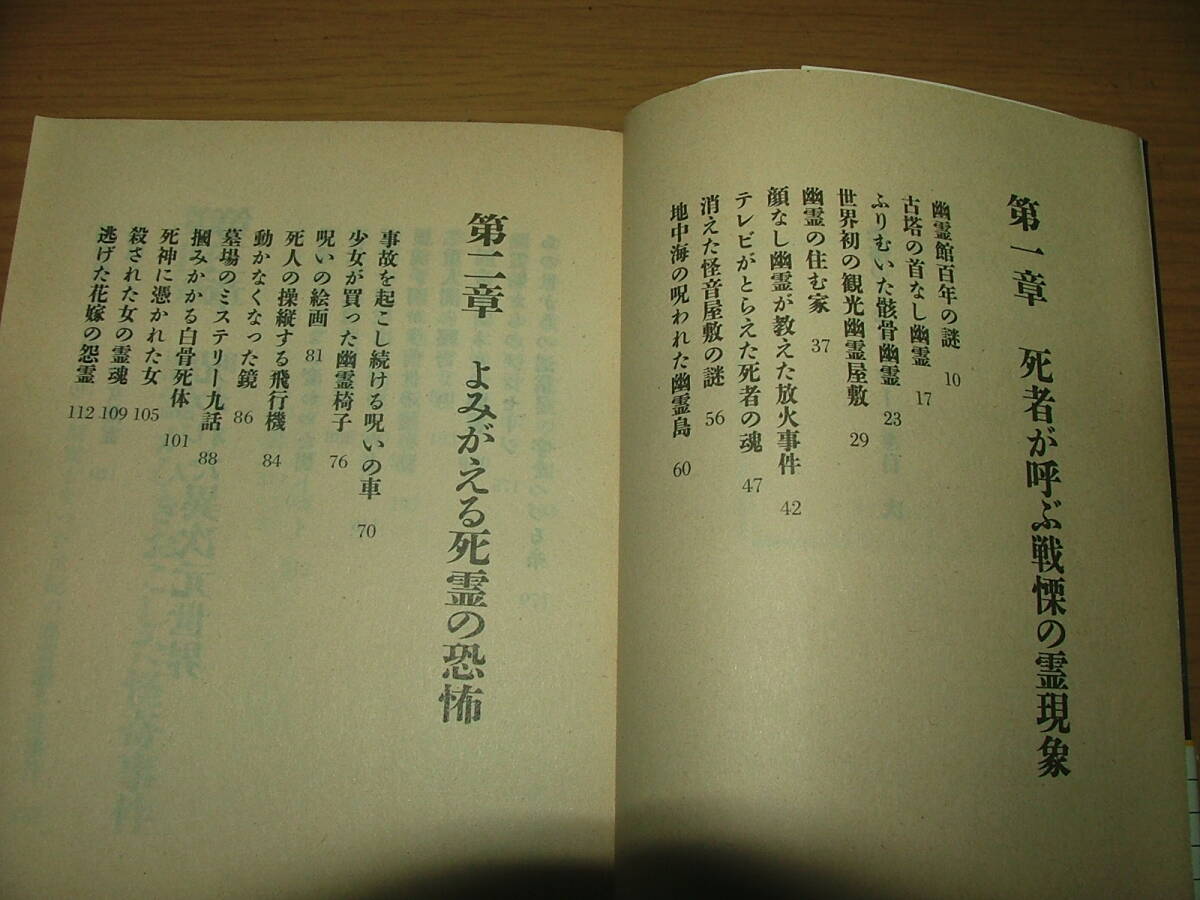 第一章 死者が呼ぶ戦慄の霊現象
幽霊館百年の謎 10
古塔の首なし幽霊 17
ふりむいた骸骨幽霊 23
世界初の観光幽霊屋敷 29
幽霊の住む家 37
顔なし幽霊が教えた放火事件 42
テレビがとらえた死者の魂 47
消えた怪音屋敷の謎 56
地中海の呪われた幽霊島 60
第二章 よみがえる死霊の恐怖
事故を起こし続ける呪いの車 70
少女が買った幽霊椅子 76
呪いの絵画 81
死人の操縦する飛行機 84
動かなくなった鏡 86
墓場のミステリー九話 88
掴みかかる白骨死体 101
死神に憑かれた女 105
殺された女の霊魂 109
逃げた花嫁の怨霊 112